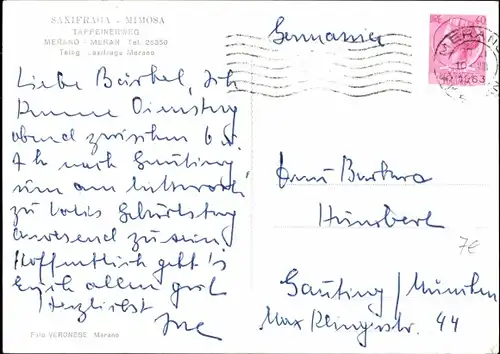 SAXIFRAGA - MIMOSA
TAPPEINERWEG
MERANO - MERAN Tel. 26350
Teleg. saxifraga Merano
Germania
40
MERANO
1963
Liebe Bärbel, Ich
komme Dienstag
abend zwischen 6 u.
7h nach Gauting
um am Mittwoch
zu Geburtstag
anwesend zu sein
Hoffentlich geht's
Euch allen gut
Herzlichst
Frau Barbara
Gauting / München
Max Klingerstr. 44
7€
Foto VERONESE Merano